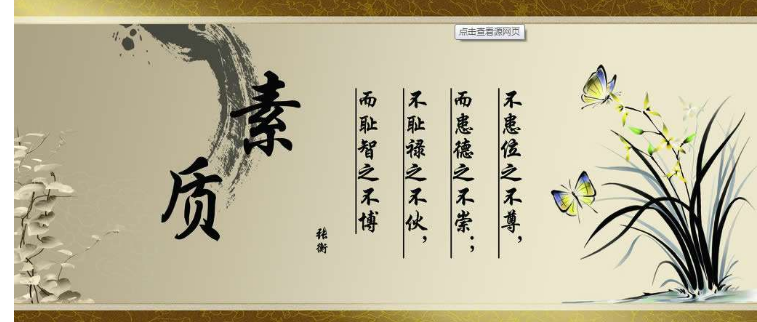 点击查看源网页
素质
不患位之不尊，
而患德之不崇；
不耻禄之不伙，
而耻智之不博
张衡